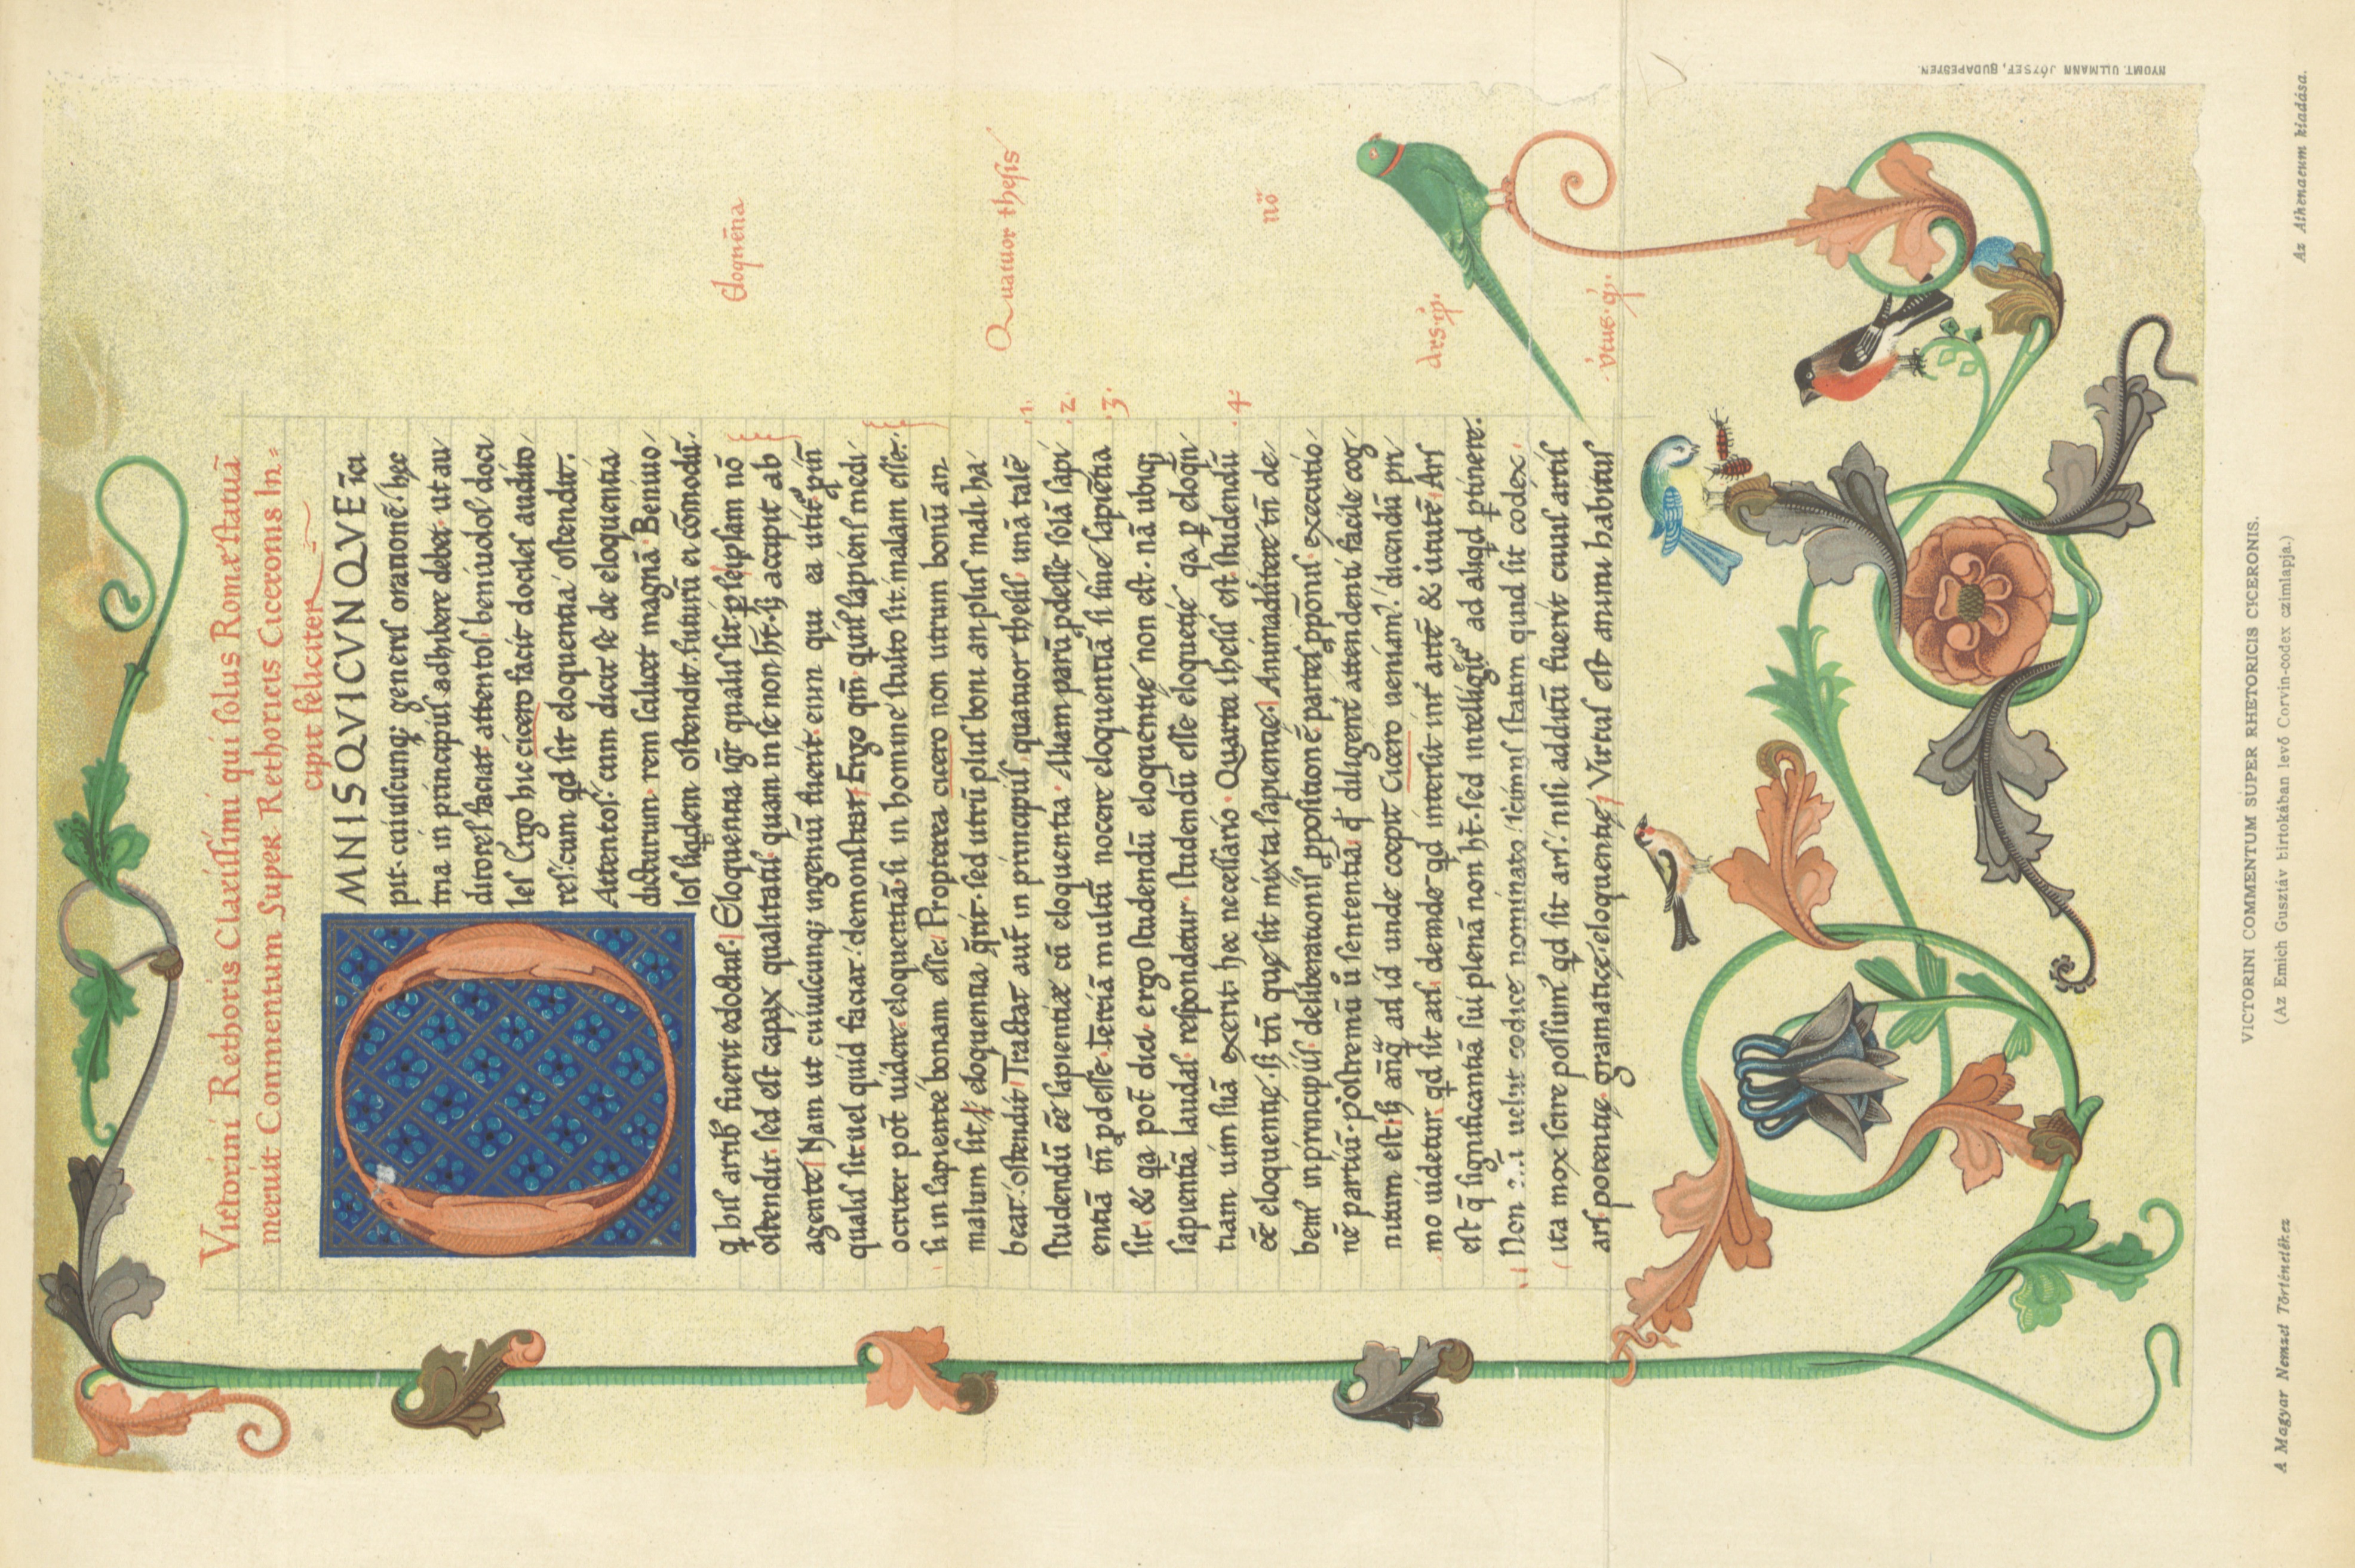 Victorini Rethoris Clarissimi qui solus Rome statuā
meruit Commentum Super Rethoricis Ciceronis In=
cipit feliciter
OMNISQVICVNQVE īci
pit. cuiuscunq; generis orationē. hec
tria in principiis adhibere debet. ut au
ditores faciat attentos beniuolos doci
les Ergo hic cicero facit dociles audito
res. cum qd sit eloquentia ostendit.
Attentos. cum dicit se de eloquentia
dicturum. rem scilicet magnā. Beniuo
los ostendit. futurū ei cōmodū.
q bis artibꝫ fuerit edoctus. Eloquentia igr qualis sit. p seipsam nō
ostendit. sed est capax qualitatis. quam in se non ht. accipit ab
agente Nam ut cuiuscunq; ingenuū fuerit. eum qui ea utit
qualis sit. uel quid faciat. demonstrat. Ergo sapiens medi
ocriter pot uidere. eloquentiā. si in homine stulto sit. malam esse.
si in sapiente bonam esse. Propterea cicero non utrum bonū an
malum sit. eloquentia qrit. sed utrū plus boni an plus mali ha
beat. ostendit. Tractat aut in principiis quatuor thesis unā talē
studendū eē sapientiæ cū eloquentia. Aliam parū pdesse solā sapi
entiā tn pdesse. Terciā multū nocere eloquentiā si sine sapiētia
sit. & qa pot dici. ergo studendū eloquentie non est. nā ubiq;
sapientiā laudat. respondetur. studendū esse eloquētie qa p eloqn
tiam uim suā exerit. hec necessario. Quarta thesis est studendū
eē eloquentie. tn que sit mixta sapientie. Animaduertere tn de
bems in principiis deliberationis ppositionē partes ppōnis. executio
nē partiū. postremū ū sententiā attendenti facile cog
nitum est. ad id unde coepit Cicero ueniam. dicendū pri
mo uidetur. qd sit ars. deinde. qd intersit int artē & uirtutē. Ars
est q significantiā sui plenā non ht. sed intelligit ad aliqd ptinere.
Non uelut codice nominato. statim quid sit codex.
ita mox scire possum qd sit ars. nisi additū fuerit cuius artis
ars potentie. gramatice. eloquentie. Virtus est animi habitus
Quatuor thesis
1.
2.
3.
4.
nō
VICTORINI COMMENTUM SUPER RHETORICIS CICERONIS.
(Az Emich Gusztáv birtokában levő Corvin-codex czimlapja.)
A Magyar Nemzet Története
Az Athenaeum kiadása.
NYOMT. ULLMANN JÓZSEF, BUDAPESTEN.